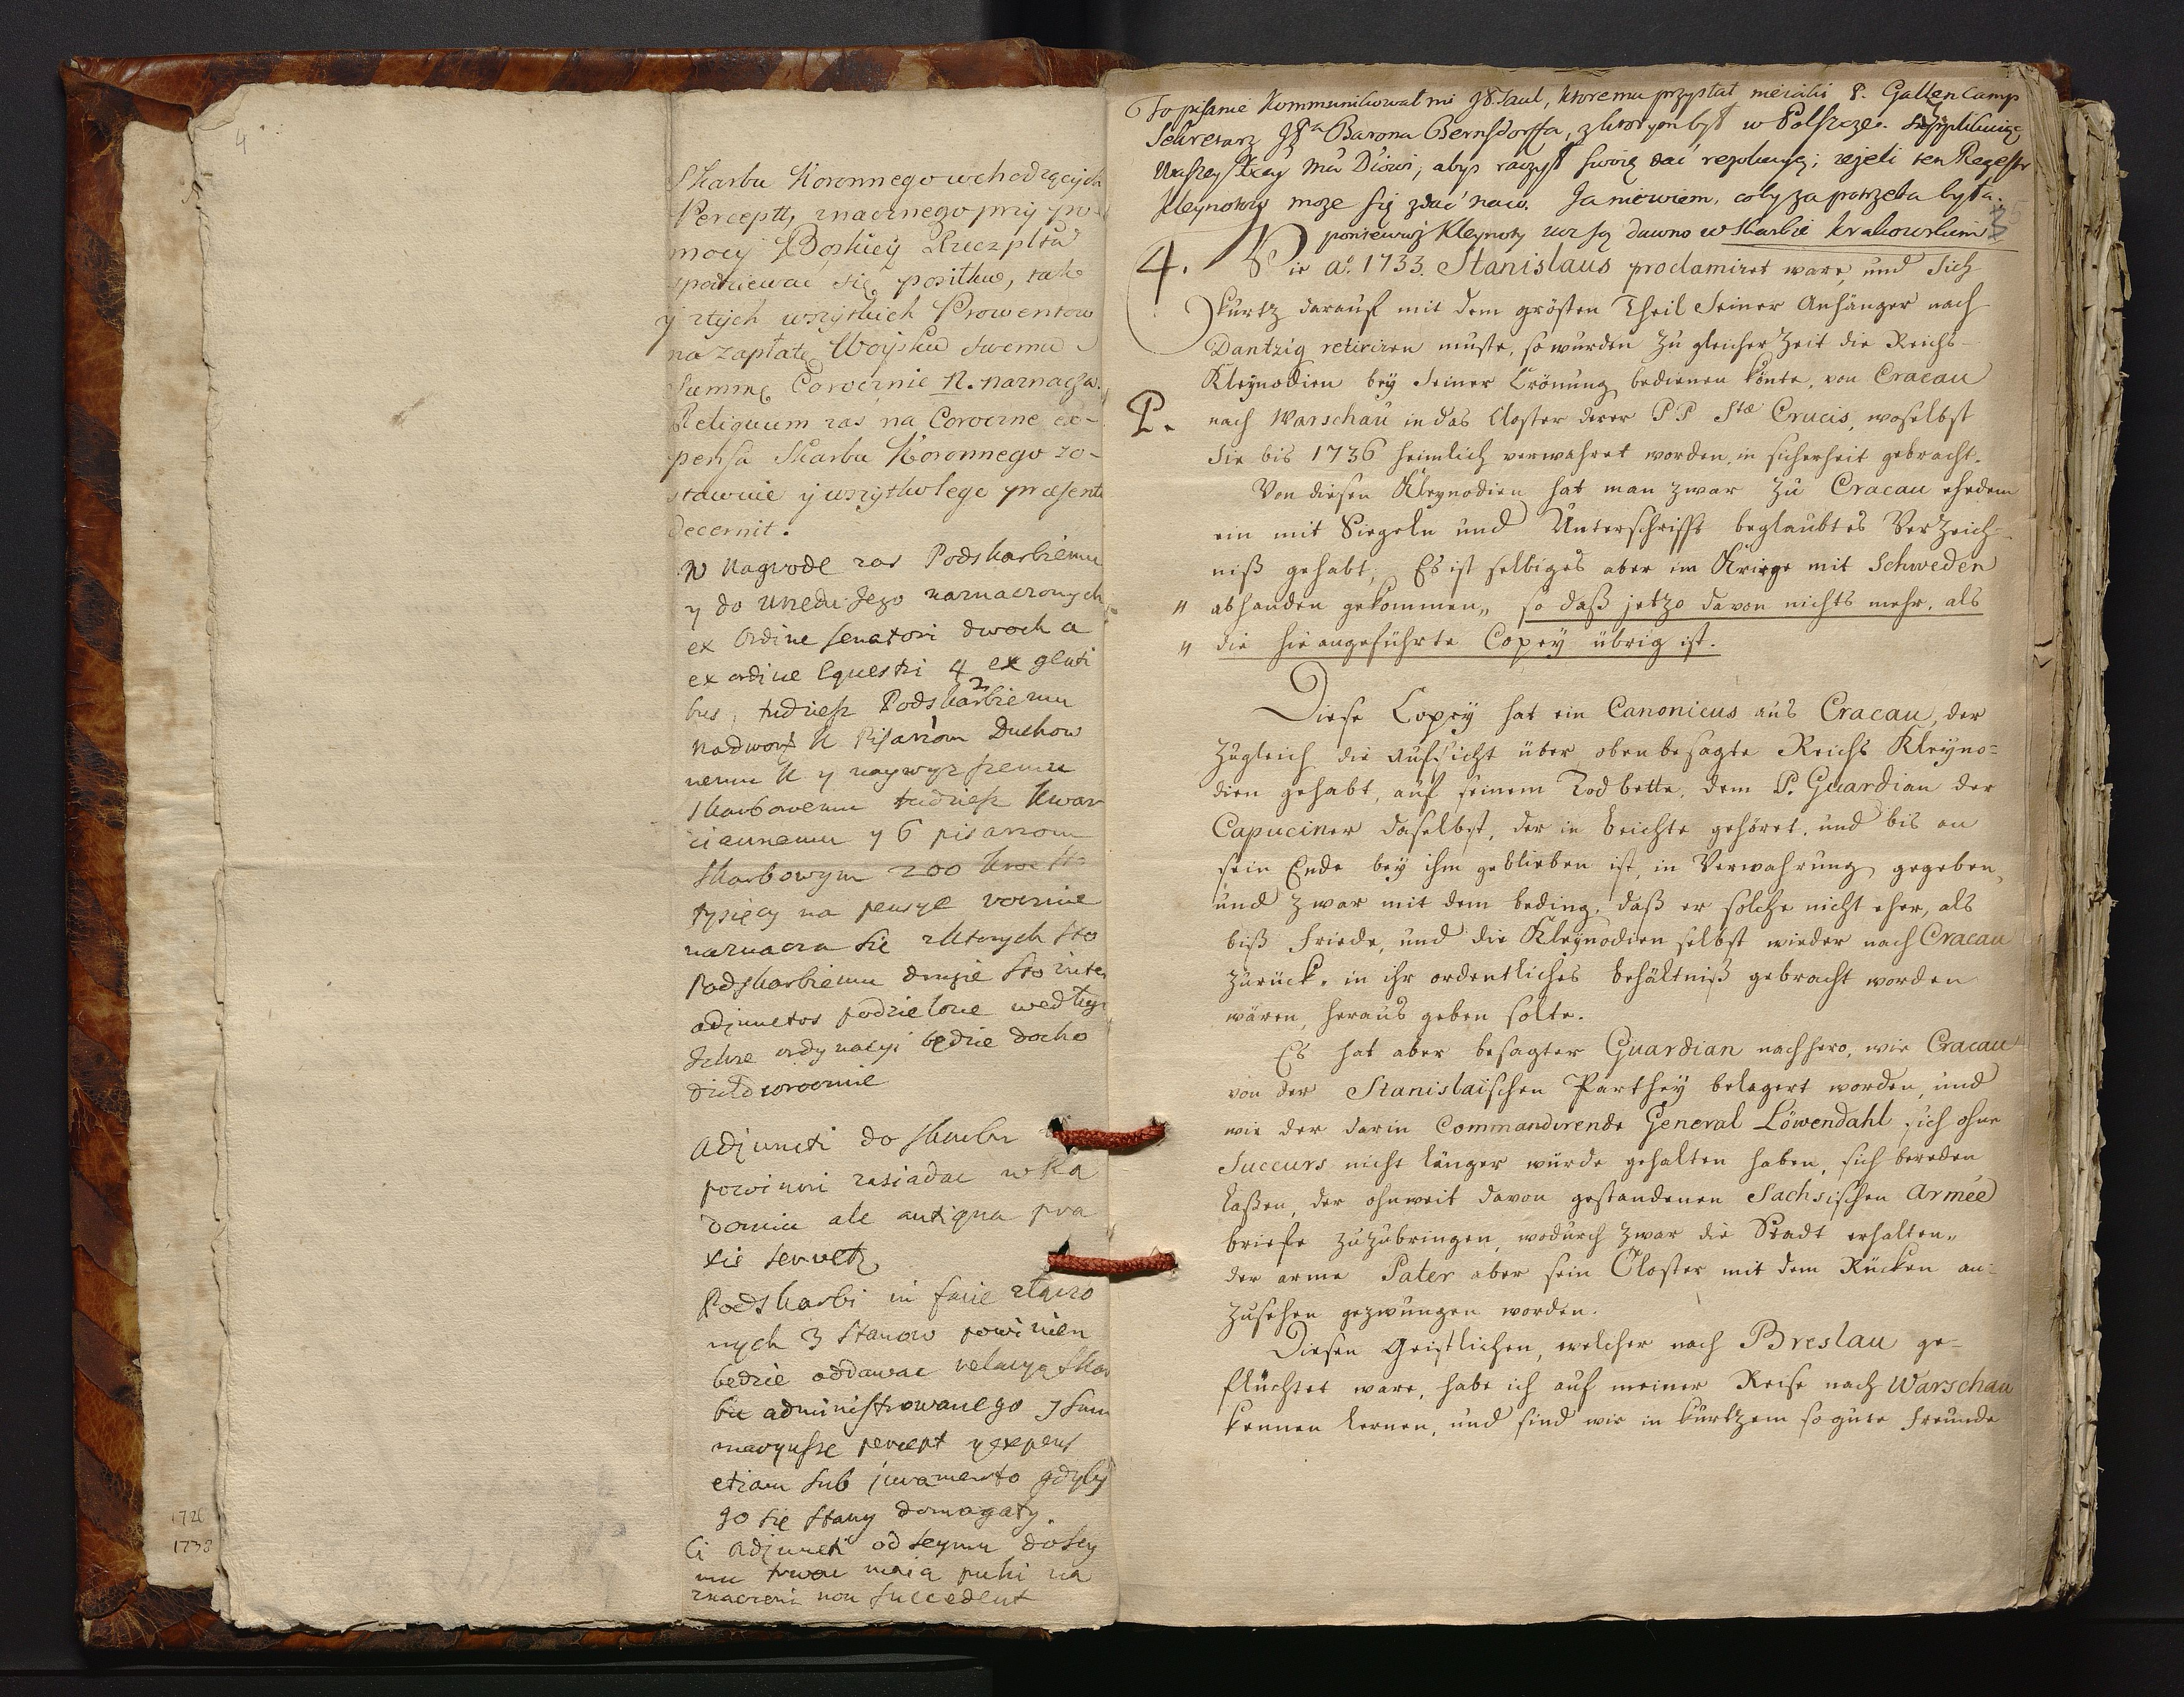 4
Skarbu Koronnego wchodzących
Percepty, znacznego przy po-
mocy Boskiey Rzeczpltа
spodziewać się posiłku, tak
y z tych wszytkich Prowentow
na zapłatę Woysku swemu
Summę Corocznie N. naznacza.
Reliquum zas na Coroczne ex-
pensa Skarbu Koronnego zo-
stawuie y wszytko lege praesenti
decernit.
W Nagrode zas Podskarbiemu
y do Urzedu Jego naznaczonych
ex Ordine Senatori dwoch a
ex ordine Equestri 4 ex
bus, tudziesz Podskarbiemu
Nadwor K Pisarzom Duchow
nemu K y naywyzszemu
Skarbowemu tudziesz Kwar
ciannemu y 6 pisarzom
Skarbowym 200
tysięcy na pensye rocznie
naznacza się z ktorych sto
Podskarbiemu drugie sto inter
adjunctos podzielone według
ordynacyi będzie docho
dziło corocznie
Adjuncti do skarbu
powinni zasiadac w Ra
domiu ale antiqua pra
xis servetur
Podskarbi in facie złączo
nych 3 Stanow powinien
będzie oddawac relacyą Skar
bu administrowanego y Sum
maryusze percept y expens
etiam sub juramento gdyby
go się stany domagały.
Ci adjuncti od seymu do sey
mu trwac maią puki na
znaczeni non succedent
1720
1738
To pisanie kommunikował mi JX. Saul, ktoremu przysłał nieiaki P. Gallencamp
Sekretarz JP Barona Bernsdorffa, z ktorym był w Polszcze.
Waszey Xcey Mci, abyś raczył swoię dać rezolucyą; iezeli ten Regestr
Kleynotow moze się zdać na co. Ja niewiem, coby za potrzeba była.
poniewaz Kleynoty iuz są dawno w Skarbie Krakowskim
3
4. Wie aᵒ. 1733. Stanislaus proclamiret ware, und sich
kurtz darauf mit dem grösten Theil seiner Anhänger nach
Dantzig retiriren muste, so wurden zu gleicher Zeit die Reichs-
Kleynodien bey seiner Crönung bedienen könte, von Cracau
P. nach Warschau in das Closter derer PP Stæ Crucis, woselbst
sie bis 1736 heimlich verwahret worden, in sicherheit gebracht.
Von diesen Kleynodien hat man zwar zu Cracau ehedem
ein mit Siegeln und Unterschrifft beglaubtes Verzeich-
niß gehabt; Es ist selbiges aber im Kriege mit Schweden
" abhanden gekommen, so daß jetzo davon nichts mehr, als
" die hie angeführte Copey übrig ist.
Diese Copey hat ein Canonicus aus Cracau, der
zugleich die Aufsicht über obenbesagte Reichs Kleyno=
dien gehabt, auf seinem Todbette, dem P. Guardian der
Capuciner daselbst, der in beichte gehöret, und bis an
sein Ende bey ihm geblieben ist, in Verwahrung gegeben,
und zwar mit dem beding, daß er solche nicht eher, als
biß Friede, und die Kleynodien selbst wieder nach Cracau
zurück, in ihr ordentliches behältniß gebracht worden
wären, heraus geben solte.
Es hat aber besagter Guardian nachhero, wie Cracau
von der Stanislaischen Parthey belagert worden, und
wie der darin Commandirende General Löwendahl sich ohne
Succurs nicht länger würde gehalten haben, sich bereden
laßen, der ohnweit davon gestandenen Sachsischen Armée
briefe zuzubringen, wodurch zwar die Stadt erhalten,
der arme Pater aber sein Closter mit dem Rücken an-
zusehen gezwungen worden.
Diesen Geistlichen, welcher nach Breslau ge-
flüchtet ware, habe ich auf meiner Reise nach Warschau
kennen lernen, und sind wir in kurtzem so gute Freunde